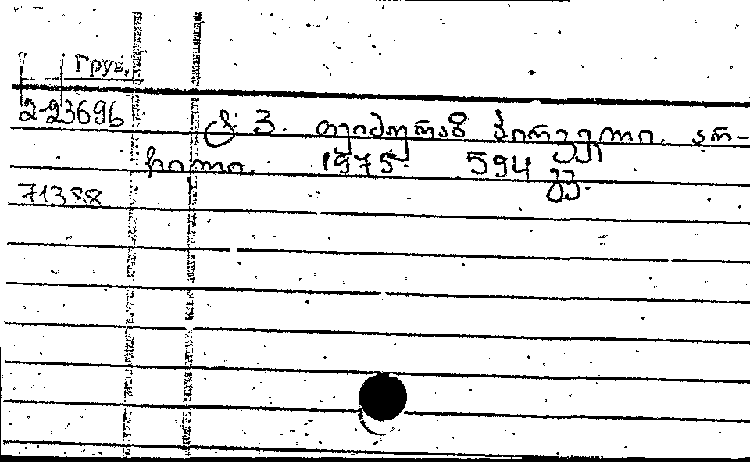 Груз.
2-23696
ტ. 3. თეიმურაზ პირველი. არ-
ჩილი. 1975. 594 გვ.
71388